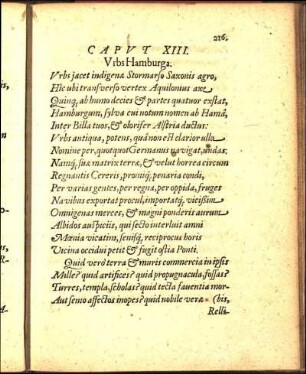 216.
CAPVT XIII.
Vrbs Hamburga.
Vrbs jacet indigena Stormarſo Saxonis agro,
Hic ubi tranſverſo vertex Aquilonius axe
Quinq; ab humo decies & partes quatuor exſtat,
Hamburgum, ſylva cui notum nomen ab Hamâ,
Inter Billa tuos, & olorifer Alſtria ductus:
Vrbs antiqua, potens, quâ non eſt clarior ulla
Nomine per, quotquot Germanus navigat, undas;
Namq; ſua matrix terræ, & velut horrea circum
Regnantis Cereris, promiq; penaria condi,
Per varias gentes, per regna, per oppida, fruges
Navibus exportat procul, importatq; viciſſim
Omnigenas merces, & magni ponderis aurum
Albidos auſpiciis, qui ſecto interluit amni
Mœnia vicatim, ſenisq; reciprocus horis
Vicina occidui petit & fugit oſtia Ponti.
Quid verò terra & muris commercia in ipſis
Mille? quid artifices? quid propugnacula, foſſas?
Turres, templa, ſcholas? quid tecta faventia mor-
Aut ſenio affectos inopes? quid nobile veræ (bis,
Relli-